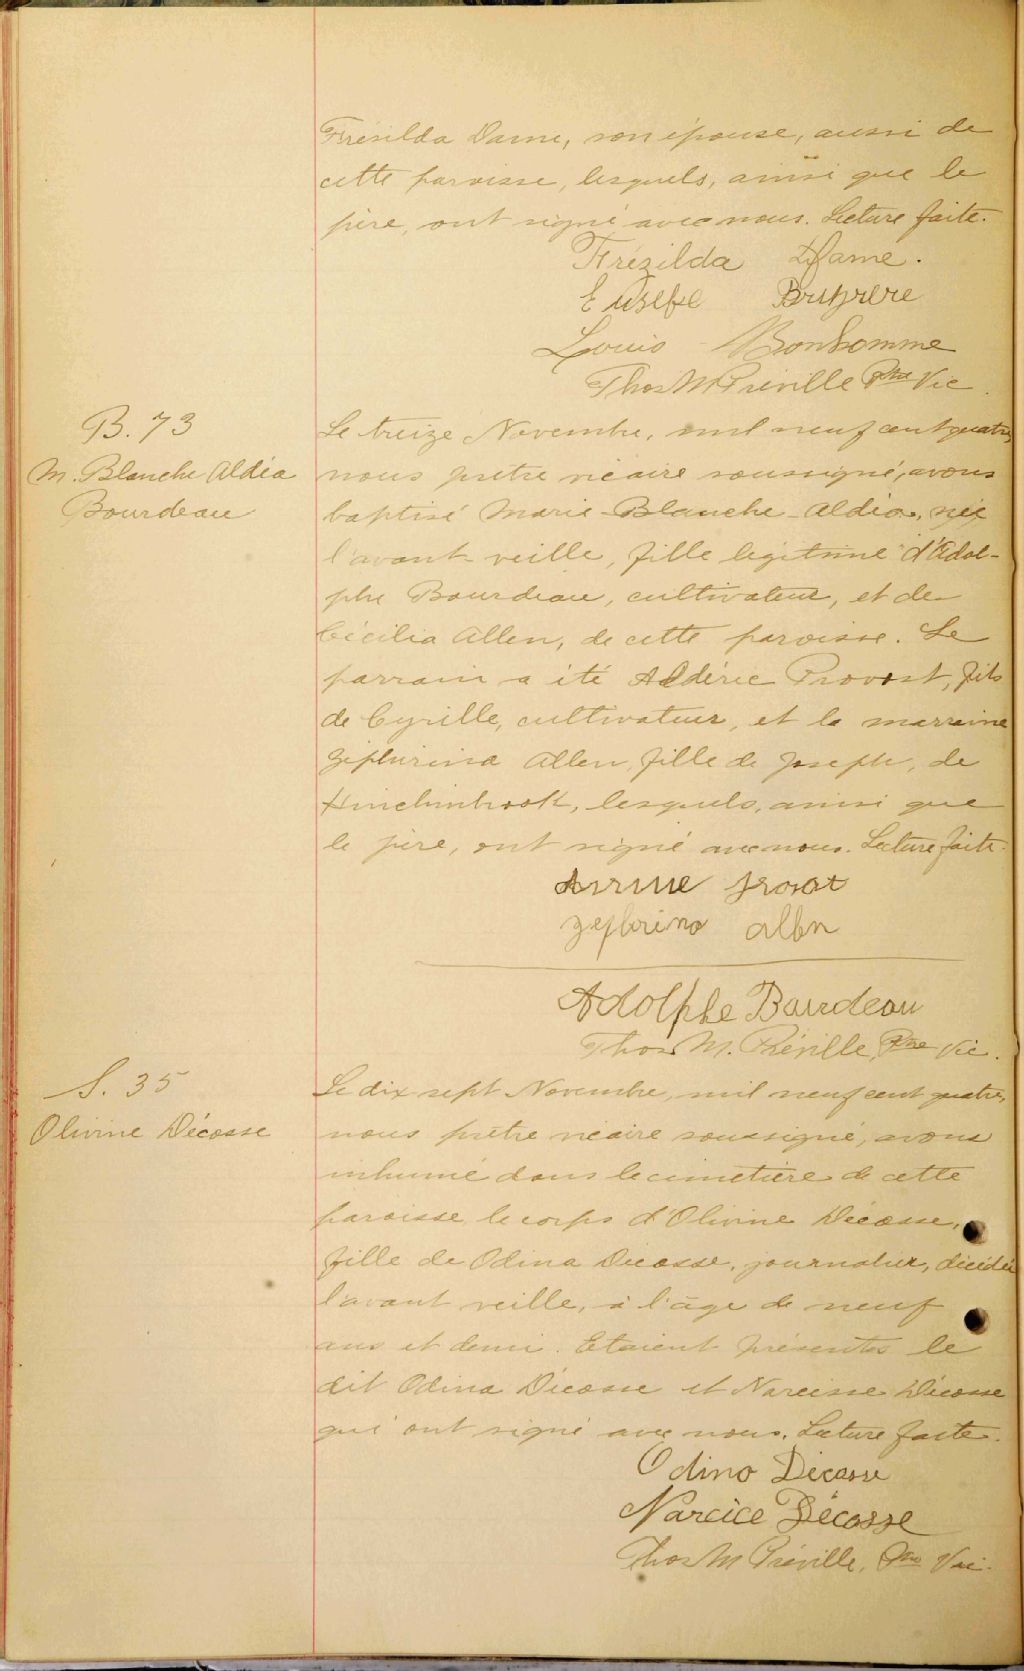 Frésilda Dame, son épouse, aussi de
cette paroisse, lesquels, ainsi que le
père, ont signé avec nous. Lecture faite.
Frézilda Dame.
Eusebe Bruyrere
Louis Bonhomme
Thos M Préville Ptre Vic.
B. 73
M. Blanche Aldéa
Bourdeau
Le treize Novembre, mil neuf cent quatre,
nous prêtre vicaire soussigné, avons
baptisé Marie-Blanche-Aldéa, née
l'avant-veille, fille légitime d'Adol-
phe Bourdeau, cultivateur, et de
Cécilia Allen, de cette paroisse. Le
parrain a été Aldéric Provost, fils
de Cyrille, cultivateur, et la marraine
Zéphirina Allen, fille de Joseph, de
Hinchinbrook, lesquels, ainsi que
le père, ont signé avec nous. Lecture faite.
zepherina allen
Adolphe Bourdeau
Thos M. Préville, Ptre Vic.
S. 35
Olivine Décosse
Le dix sept Novembre, mil neuf cent quatre,
nous prêtre vicaire soussigné, avons
inhumé dans le cimetière de cette
paroisse le corps d'Olivine Décosse,
fille de Odina Décosse, journalier, décédée
l'avant veille, à l'âge de neuf
ans et demi. Etaient présents le
dit Odina Décosse et Narcisse Décosse
qui ont signé avec nous. Lecture faite.
Odino Décosse
Narcice Décosse
Thos M Préville, Ptre Vic.